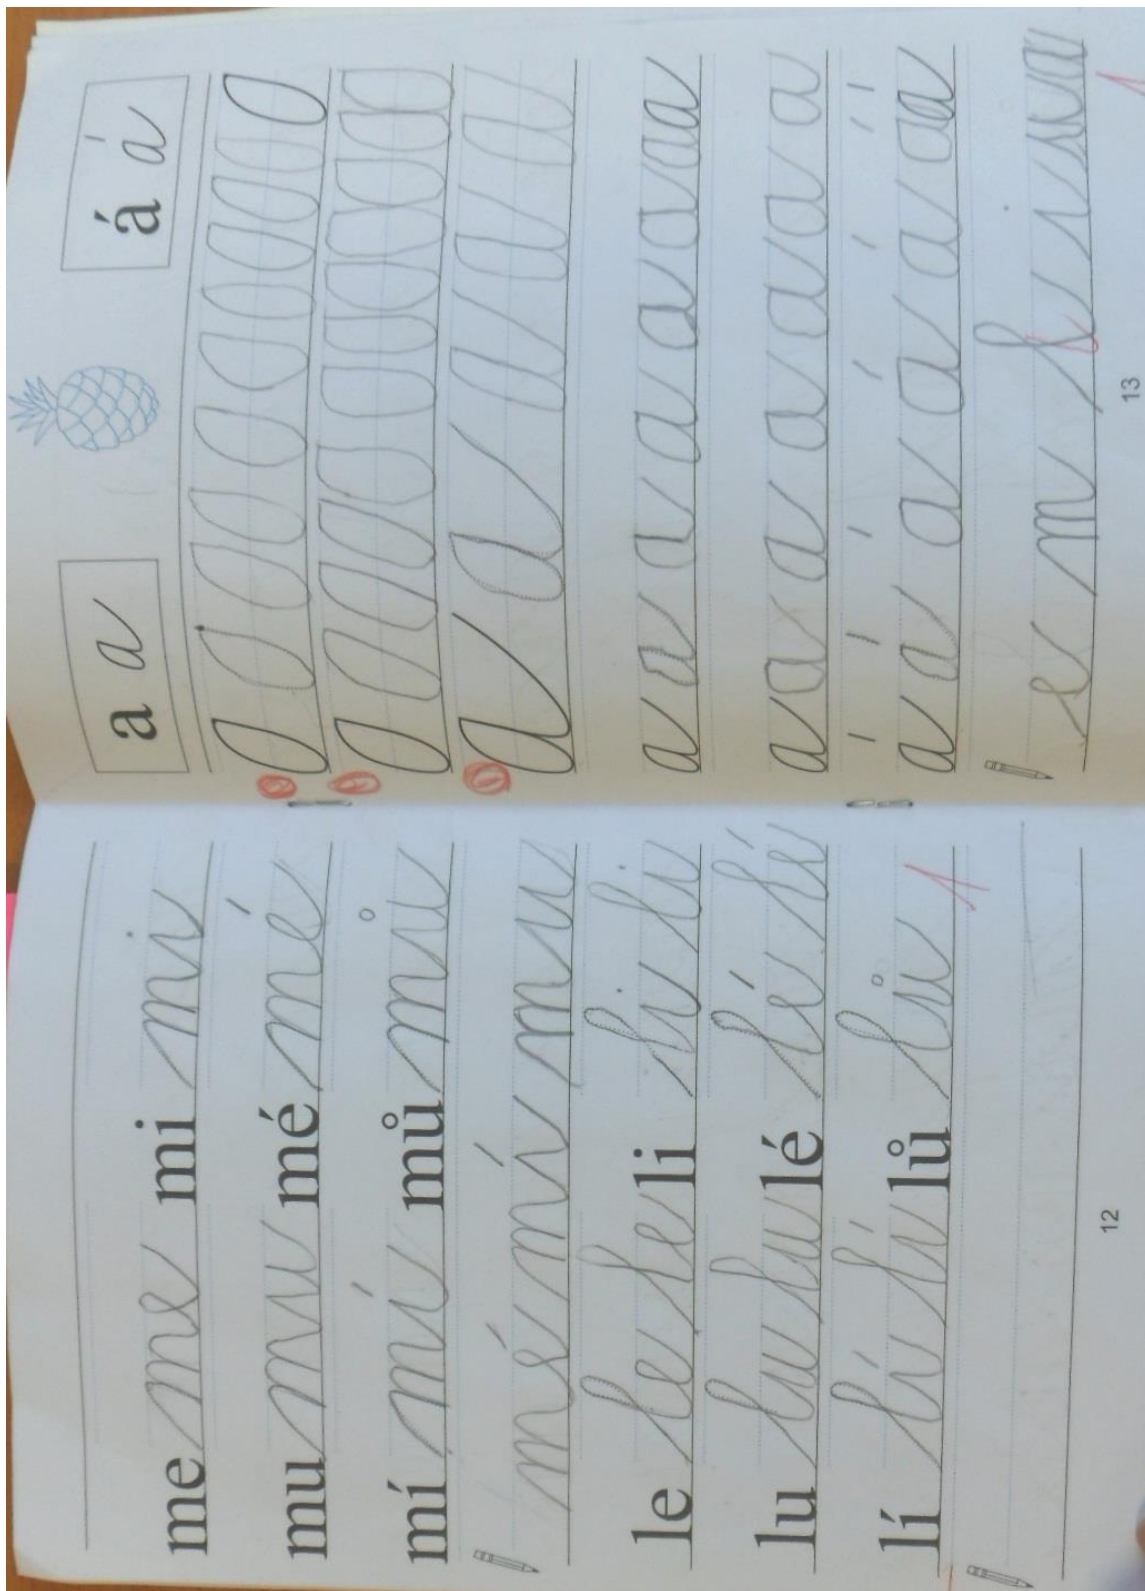 me me mi mi
mu mu mé mé
mí mí mů mů
mé mí mu
le le le li li li
lu lu lu lé lé lé
lí lí lí lů lů
1
12
a a á á
a a a a a
a a a a a a a a
a a a a a a a
á á á á á á á
e m l
1
13